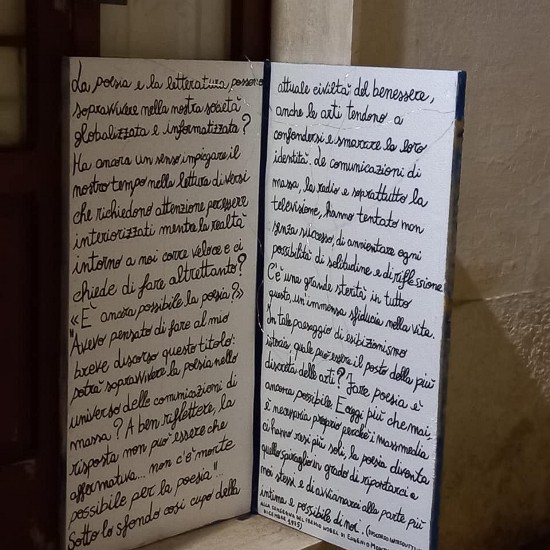 La poesia e la letteratura possono
sopravvivere nella nostra società
globalizzata e informatizzata?
Ha ancora un senso impiegare il
nostro tempo nella lettura di versi
che richiedono attenzione per essere
interiorizzati mentre la realtà
intorno a noi corre veloce e ci
chiede di fare altrettanto?
«E' ancora possibile la poesia?»
"Avevo pensato di fare al mio
breve discorso questo titolo:
potrà sopravvivere la poesia nello
universo delle comunicazioni di
massa? A ben riflettere, la
risposta non può essere che
affermativa... non c'è morte
possibile per la poesia"...
Sotto lo sfondo così cupo della
attuale civiltà del benessere,
anche le arti tendono a
confondersi e smarrire la loro
identità. Le comunicazioni di
massa, la radio e soprattutto la
televisione, hanno tentato non
senza successo, di annientare ogni
possibilità di solitudine e di riflessione
C'è una grande sterilità in tutto
questo, un'immensa sfiducia nella vita.
In tale paesaggio di esibizionismo
isterico quale può essere il posto della più
discreta delle arti? Fare poesia è
ancora possibile. E oggi più che mai,
è necessaria proprio perchè i mass media
ci hanno resi più soli, la poesia diventa
quello spiraglio in grado di riportarci a
noi stessi e di avvicinarci alla parte più
intima e possibile di noi. (DISCORSO
ALLA CONSEGNA DEL PREMIO NOBEL DI EUGENIO
DICEMBRE 1975)